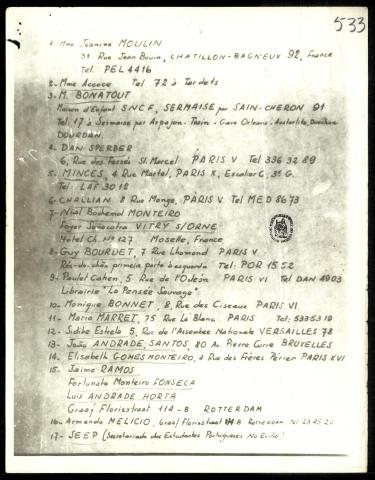 533
1 Mme Jeanine MOULIN
31 Rue Jean Bouin, CHATILLON-BAGNEUX 92, France
Tel. PEL 4416
2- Mme Acoce Tel 72 à Tardets
3- M. BONATOUT
Maison d'Enfant S.N.C.F, SERMAISE par SAIN-CHERON 91
Tel. 17 à Sermaise par Arpajon - Train - Gare Orleans - Austerlitz, Direction
DOURDAN
4- DAN SPERBER
6, Rue des Fossés St. Marcel PARIS V Tel 336 32 89
5- MINCES, 4 Rue Martel, PARIS X, Escalier C, 3º G.
Tel LAF 3018
6- CHALLIAN 8 Rue Monge, PARIS V Tel MED 8673
7- Nial Bochemol MONTEIRO
Foyer Sonacotra VITRY S/ORNE
Hotel Ch. Nº 127 Moselle, France
8- Guy BOURDET, 7 Rue Lhomond PARIS V
Rés-do-chão primeira porta à esquerda Tel: POR 15 52
9- Paulet Cohen, 5 Rue de l'Odeón PARIS VI Tel DAN 4903
Librairie "La Pensée Sauvage"
10- Monique BONNET, 8, Rue des Ciseaux PARIS VI
11- Maria MARRET, 75 Rue Le Blanc PARIS Tel: 5335319
12- Sidibe Estrela 5, Rue de l'Assembee Nationale VERSAILLES 78
13- João ANDRADE SANTOS, 80 Av. Pierre Curie BRUXELLES
14- Elisabeth GOMES MONTEIRO, 4 Rue des Frères Périer PARIS XVI
15- Jaime RAMOS
Fortunato Monteiro FONSECA
Luis ANDRADE HORTA
Graaf Florisstraat 114-B ROTTERDAM
16- Armando MELICIO, Graaf Florisstraat 114B ROTTERDAM Tel 23 45 20
17- SEEP (Secretariado dos Estudantes Portugueses No Exilio)